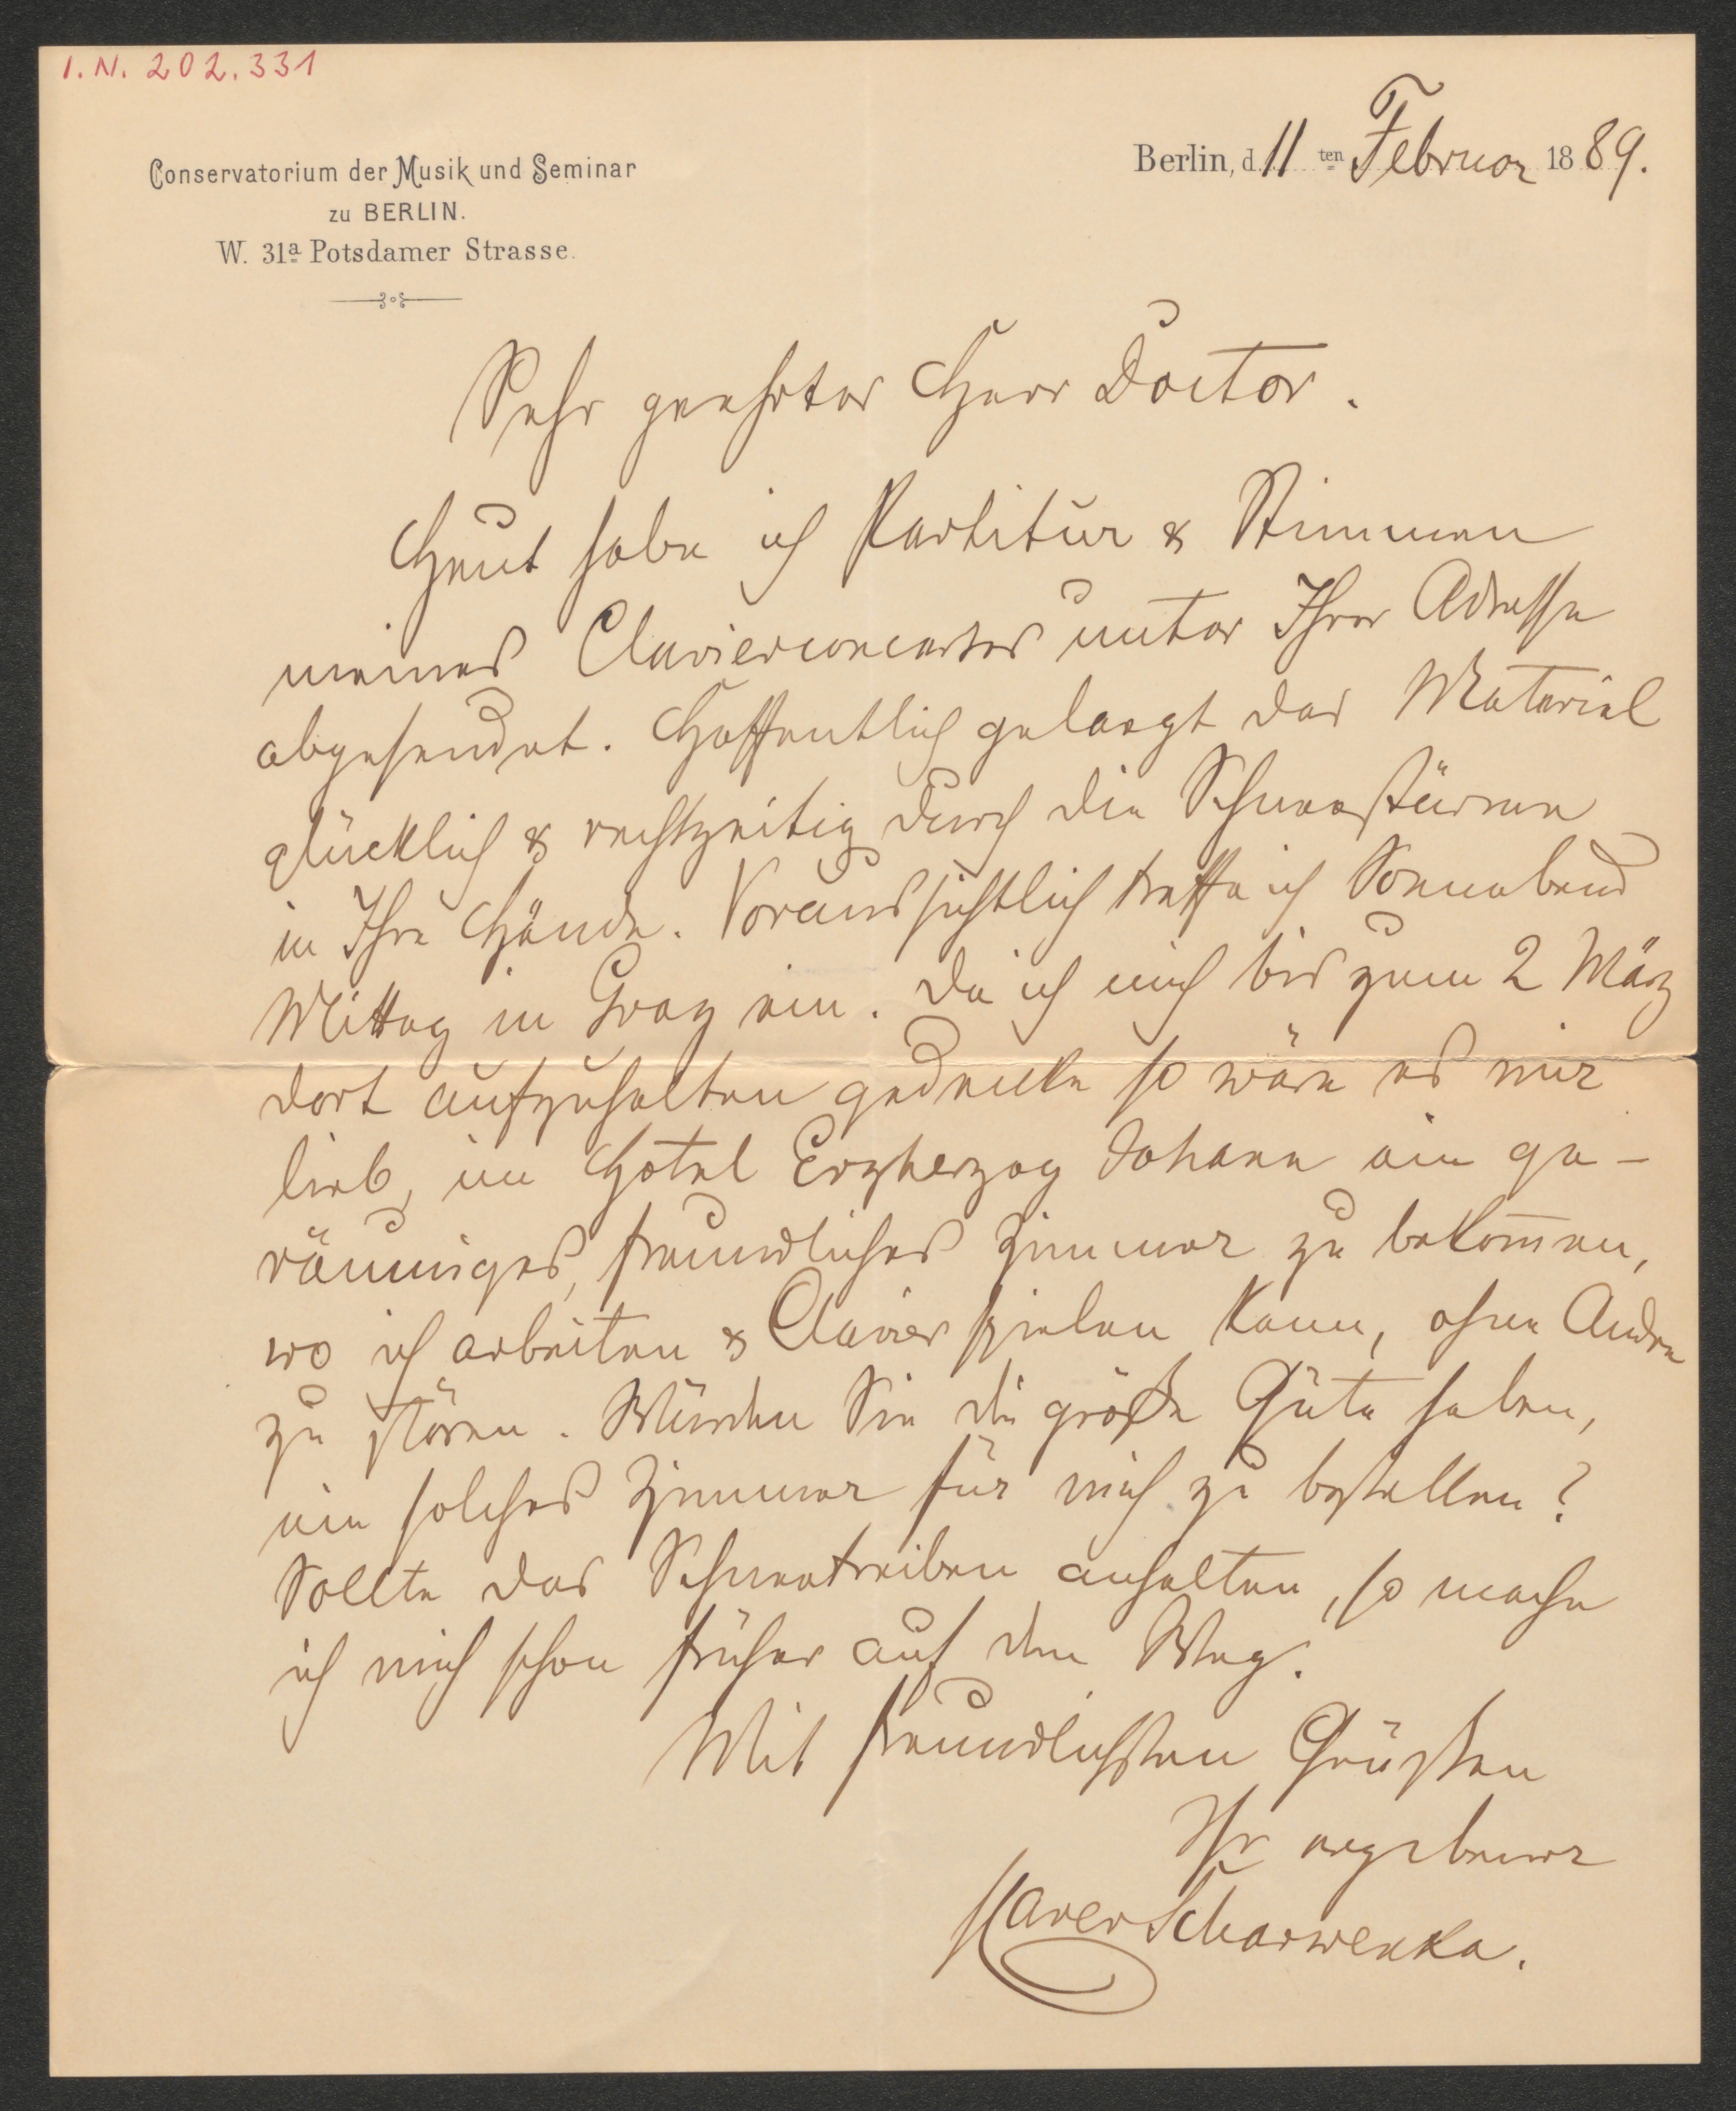 I.N. 202.331
Conservatorium der Musik und Seminar
zu BERLIN.
W. 31a Potsdamer Strasse.
Berlin, d. 11 ten Februar 1889.
Sehr geehrter Herr Doctor.
Heut habe ich Partitur & Stimmen
meines Clavierconcertes unter Ihrer Adresse
abgesendet. Hoffentlich gelangt das Material
glücklich & rechtzeitig durch die Schneestürme
in Ihre Hände. Voraussichtlich treffe ich Sonnabend
Mittag in Graz ein. Da ich mich bis zum 2 März
dort aufzuhalten gedenke so wäre es mir
lieb, im Hotel Erzherzog Johann ein ge-
räumiges, freundliches Zimmer zu bekom̄en,
wo ich arbeiten & Clavier spielen kann, ohne Andre
zu stören. Würden Sie die große Güte haben,
ein solches Zimmer für mich zu bestellen?
Sollte das Schneetreiben anhalten, so mache
ich mich schon früher auf den Weg.
Mit freundlichsten Grüßen
Ihr ergebener
Xaver Scharwenka.